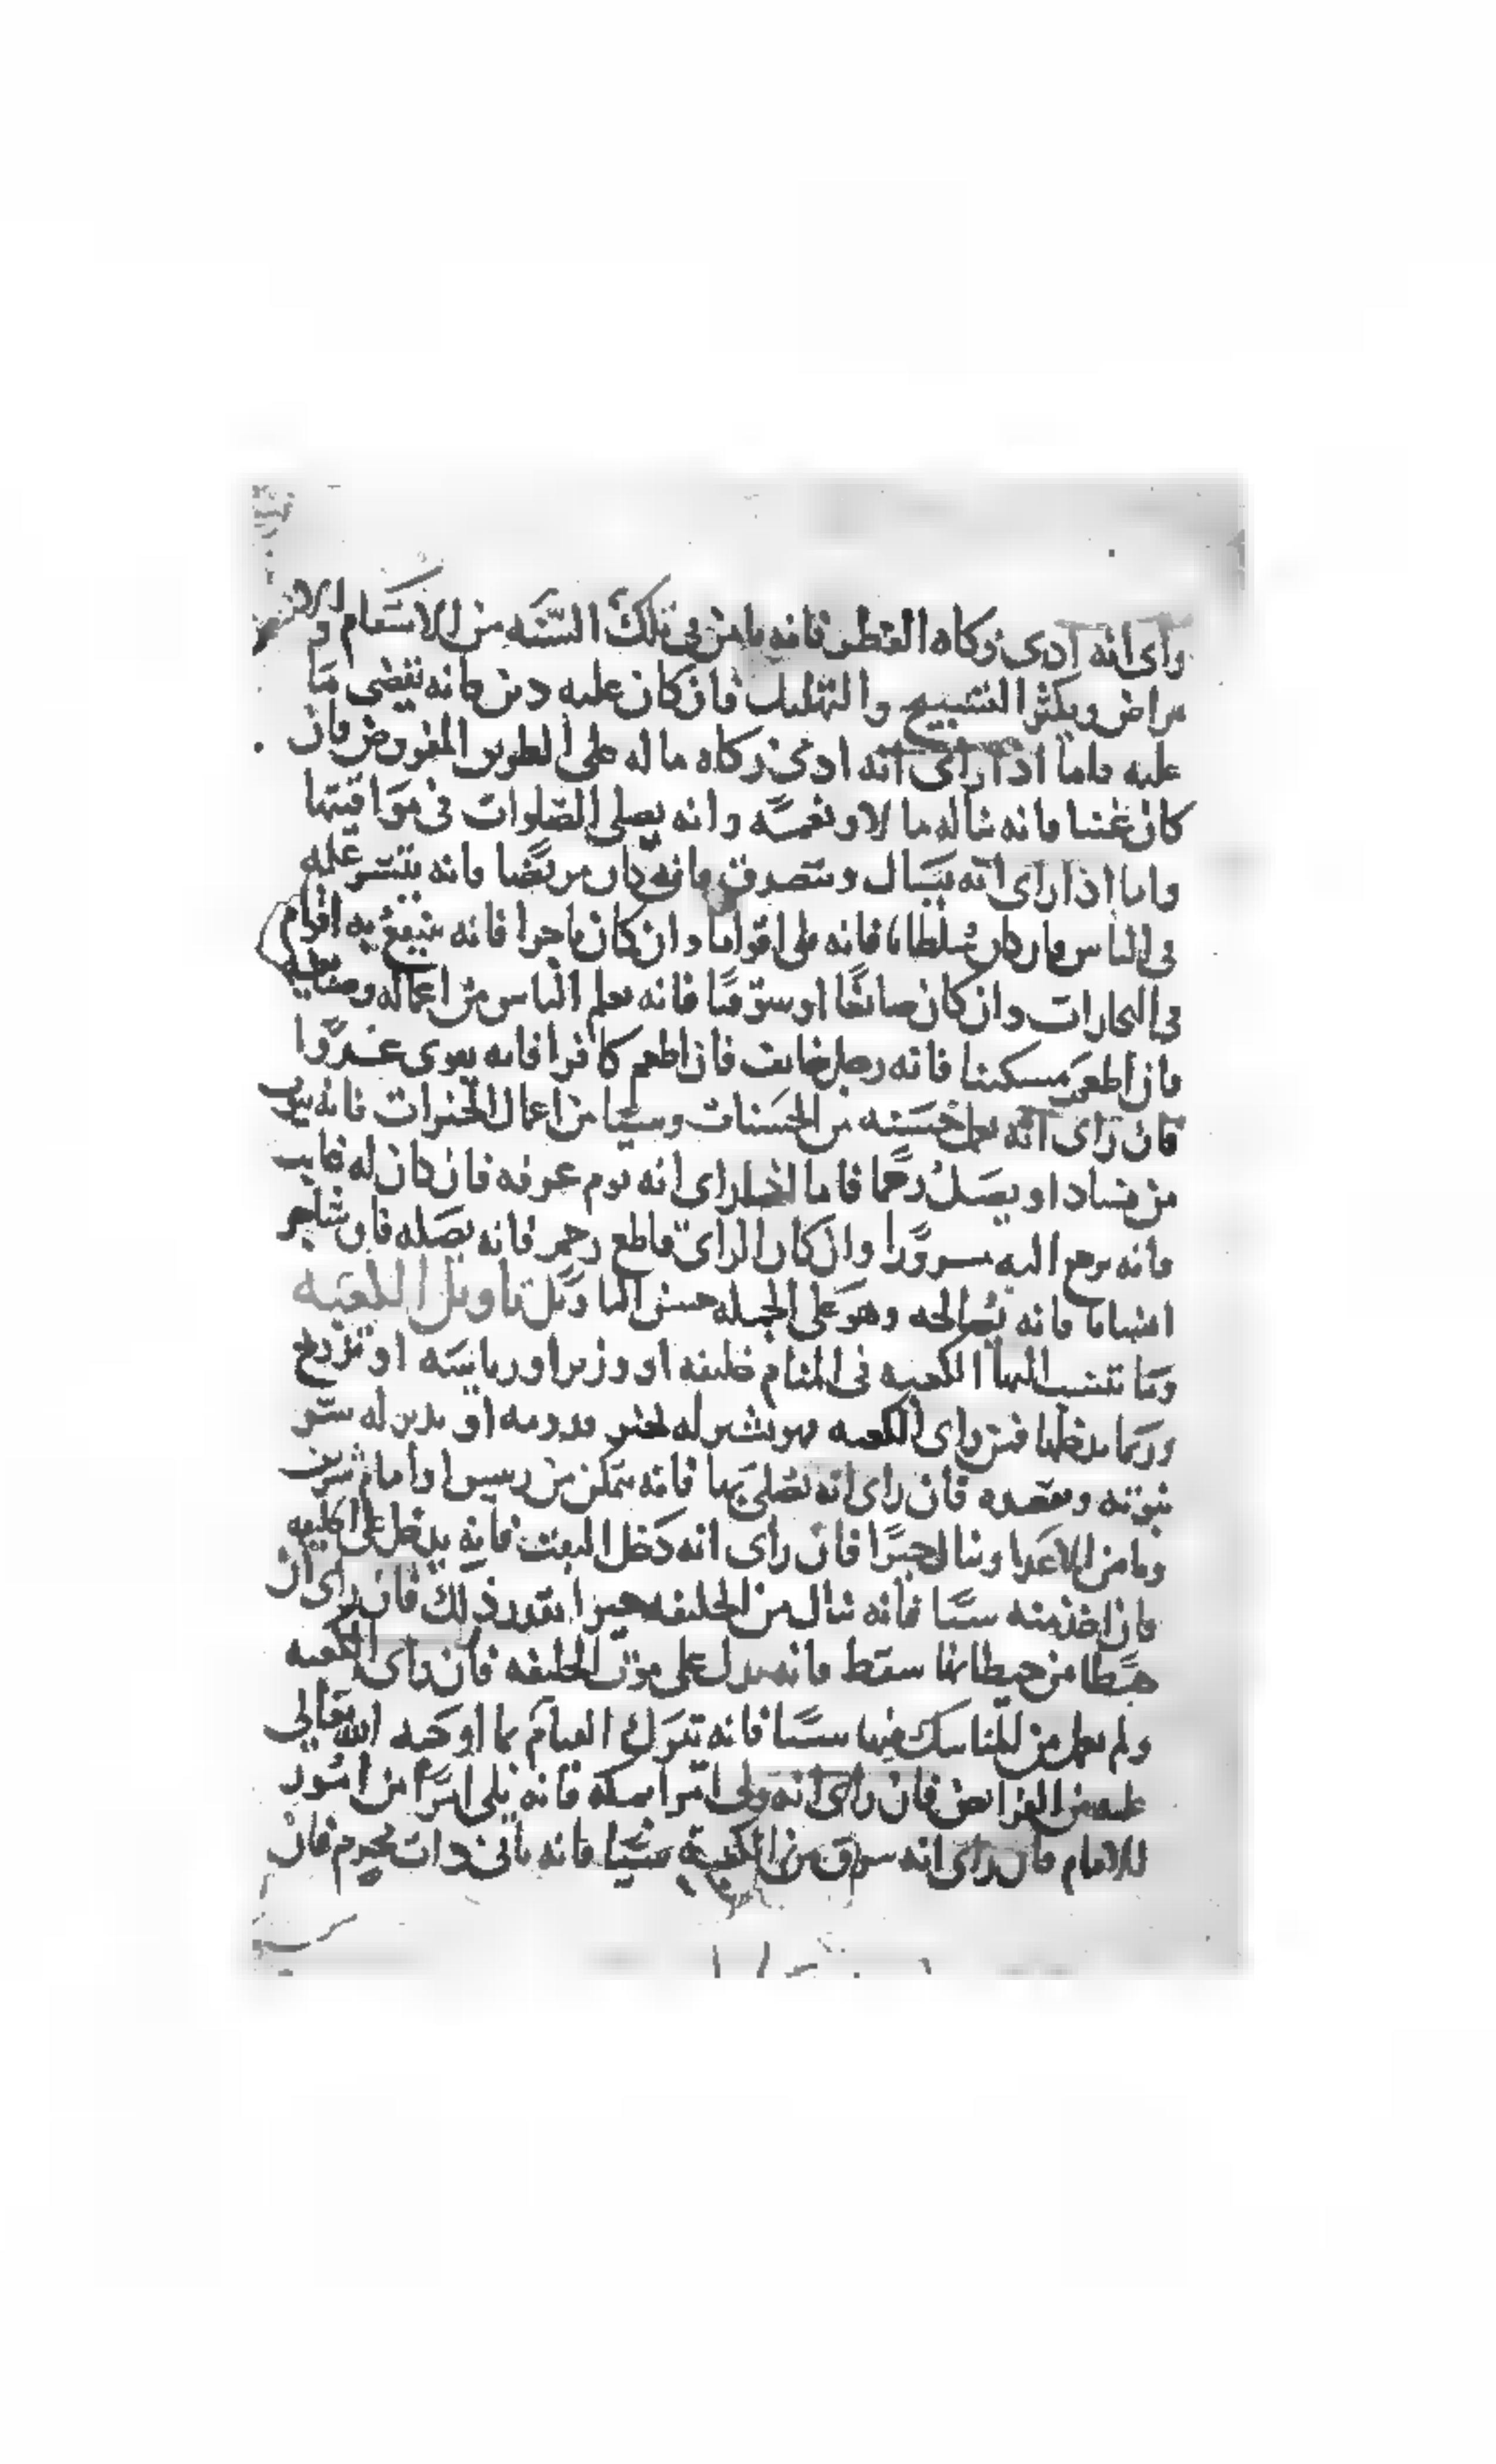 رأى انه ادى زكاه الفطر فانه يامن فى تلك السنه من الاسقام و
مراض ويكثر التسبيح والتهليل فان كان عليه دين فانه يقضى ما
عليه فاما اذا راى انه ادى زكاه ماله على الطوس المفروض فان
كان غنيا فانه يناله مالا ونعمه وانه يصلى الصلوات فى مواقيتها
واما اذا راى انه يسال ويتصرف فانه كان مريضا فانه ينتشر علمه
فى الناس وان كان سلطانا فانه على اقواما وان كان تاجرا فانه ينتفع به اقوام
فى التجارات وان كان صانعا او سوقيا فانه يعلم الناس من اعماله وصنايعه
فان اطعم مسكينا فانه رجل خايف فان اطعم كافرا فانه يقوى عدوا
فان راى انه عمل حسنه من الحسنات وشيا من اعمال الخيرات فانه يتوب
من فساد او يصل رحما فاما اذا راى انه يوم عرفه فان كان له غايب
فانه يرجع اليه مسرورا وان كان الراى قاطع رحم فانه يصله فان شاجر
انسانا فانه يصالحه وهو على الجمله حسن التاويل تاويل الكعبه
وما تنسب اليها الكعبه فى المنام خليفه او وزير او رياسه او تزويج
وربما يدخلها فمن راى الكعبه فهو بشير له بخير قدومه او يدبر له ستر
نيوته ومقصده فان راى انه يصلى بها فانه يتمكن من رييس او امام شريف
ويامن الاعدا وينال خيرا فان راى انه دخل البيت فانه يدخل على الخليفه
فان اخذ منه شيا فانه ينال من الخليفه خيرا بقدر ذلك فان راى ان
حيطا من حيطانها سقط فانه يدل على موت الخليفه فان راى الكعبه
ولم يعمل من المناسك فيها شيا فانه يترك القيام بما اوجبه الله تعالى
عليه من الفرائض فان راى انه ولى امر مكه فانه يلى امرا من امور
للامام فان راى انه سرق من الكعبه شيا فانه ياتى ذات محرم فان